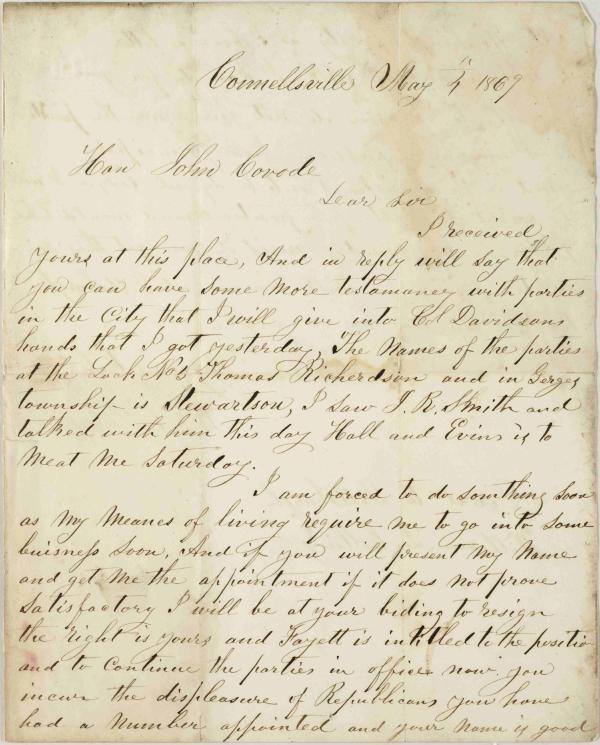 Connellsville May 4" 1869
Hon John Covode
Dear Sir
I received
yours at this place, And in reply will say that
you can have some more testamaney with parties
in the City that I will give into Col Davidsons
hands that I got yesterday, The Names of the parties
at the Lock No 5 Thomas Richerdson and in Gerges
township is Stewartson, I saw J. R. Smith and
talked with him this day Hall and Evins is to
Meat Me Saturday.
I am forced to do somthing soon
as My Meanes of living require me to go into some
buisness soon, And if you will present My Name
and get Me the appointment if it does not prove
Satisfactory I will be at your biding to resign
the right is yours and Fayett is intitled to the positio
and to Continue the parties in office now you
incur the displeasure of Republicans you have
had a Number appointed and your Name is good